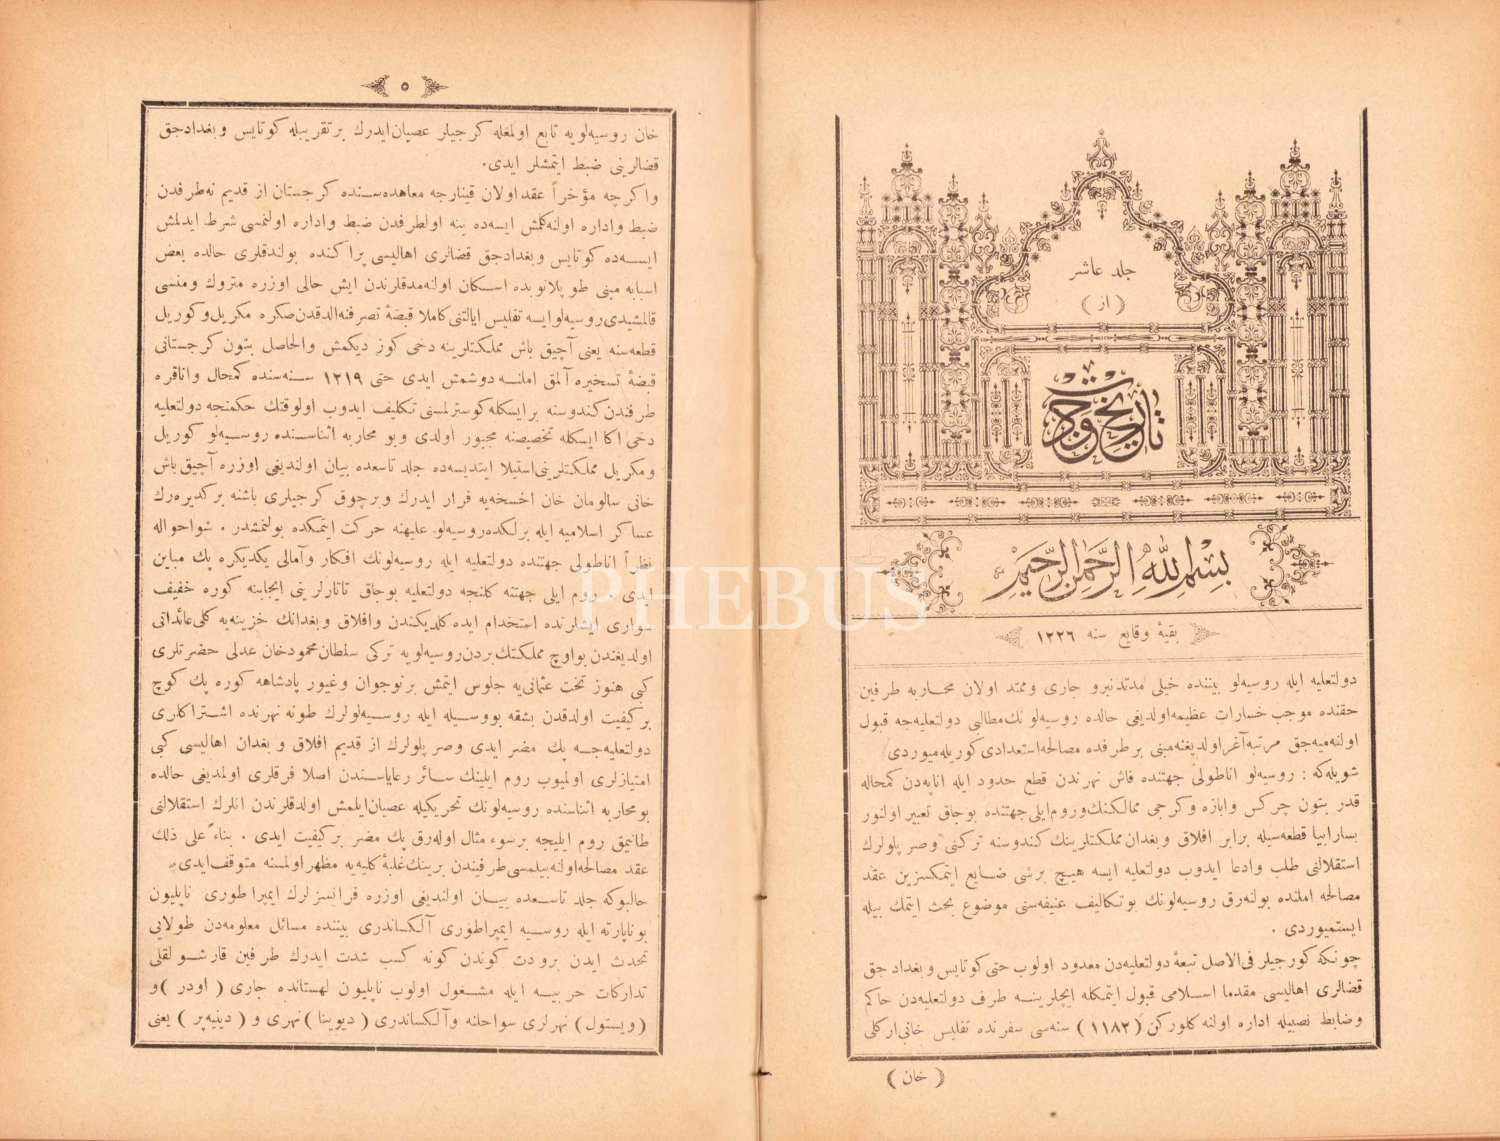 جلد عاشر
( از )
تاریخ جودت
بسم الله الرحمن الرحیم
بقیۀ وقایع سنه ١٢٢٦
دولتعلیه ایله روسیه‌لو بیننده خیلی مدتدنبرو جاری وممتد اولان محاربه طرفین
حقنده موجب خسارات عظیمه‌اولدیغی حالده روسیه‌لو نك‌مطالبی دولتعلیه‌جه قبول
اولنه‌میه‌جق مرتبه‌آغراولدیغنه‌مبنی برطرفده مصالحه‌استعدادی کوریله‌میوردی
شویله‌که : روسیه‌لو اناطولی جهتنده فاش نهرندن قطع حدود ایله اناپه‌دن کمخاله
قدر بتون چرکس وابازه وکرجی ممالکنك‌وروم‌ایلی‌جهتنده بوجاق تعبیر اولنور
بسارابیا قطعه‌سیله برابر افلاق وبغدان مملکتلرینك کندوسنه ترکنی وصرپلولرك
استقلالنی طلب وادعا ایدوب دولتعلیه ایسه هیچ برشی ضایع ایتمکسزین عقد
مصالحه املنده بولنه‌رق روسیه‌لونك بوتکالیف عنیفه‌سنی موضوع بحث ایتمك بیله
ایستمیوردی .
چونکه کورجیلر فی‌الاصل تبعۀ دولتعلیه‌دن معدود اولوب حتی کوتایس وبغداد جق
قضالری اهالیسی مقدما اسلامی قبول ایتمکله ایچلرینه طرف دولتعلیه‌دن حاکم
وضابط نصبیله اداره اولنه کلورکن ( ١١٨٢ ) سنه‌سی سفرنده تفلیس خانی‌ارکلی
( خان )
٥
خان روسیه‌لویه تابع اولمغله کرجیلر عصیان‌ایدرك برتقریبله کوتایس وبغدادجق
قضالرینی ضبط ایتمشلر ایدی.
واکرچه مؤخراً عقداولان قینارجه معاهده‌سنده کرجستان از قدیم نه‌طرفدن
ضبط واداره اولنه‌کلمش ایسه‌ده ینه اولطرفدن ضبط واداره اولنمسی شرط ایدلمش
ایسه‌ده کوتایس وبغدادجق قضالری اهالیسی پراکنده بولندقلری حالده بعض
اسبابه مبنی طوپلانوبده اسکان اولنه‌مدقلرندن ایش حالی اوزره متروك ومنسی
قالمشیدی‌روسیه‌لوایسه تفلیس ایالتنی‌کاملا قبضۀ تصرفنه‌الدقدن‌صکره مکریل‌وکوریل
قطعه‌سنه یعنی آچیق باش مملکتلرینه دخی کوز دیکمش والحاصل بتون کرجستانی
قبضۀ تسخیره آلمق املنه دوشمش ایدی حتی ١٢١٩ سنه‌سنده کمخال واناقره
طرفندن‌کندوسنه برایسکله کوسترلمسنی تکلیف ایدوب اولوقتك حکمنجه دولتعلیه
دخی اکا ایسکله تخصیصنه مجبور اولدی وبو محاربه اثناسنده روسیه‌لو کوریل
ومکریل مملکتلرینی‌استیلا ایتدیسه‌ده جلد تاسعده بیان اولندیغی اوزره آچیق‌باش
خانی سالومان خان اخسخه‌یه فرار ایدرك وبرچوق کرجیلری باشنه برکدیره‌رك
عساکر اسلامیه ایله برلکده‌روسیه‌لو علیهنه حرکت ایتمکده بولنمشدر . شواحواله
نظراً اناطولی جهتنده دولتعلیه ایله روسیه‌لونك افکار وآمالی یکدیکره پك مباین
ایدی . روم ایلی جهتنه کلنجه دولتعلیه بوجاق تاتارلرینی ایجابنه کوره خفیف
سواری ایشلرنده استخدام ایده کلدیکندن وافلاق وبغدانك خزینه‌یه کلی‌عائداتی
اولدیغندن بواوچ مملکتك بردن‌روسیه‌لویه ترکی سلطان‌محمودخان عدلی حضرتلری
کبی هنوز تخت عثمانی‌یه جلوس ایتمش برنوجوان وغیور پادشاهه کوره پك کوچ
برکیفیت اولدقدن بشقه بووسیله ایله روسیه‌لولرك طونه نهرنده اشتراکلری
دولتعلیه‌جه پك مضر ایدی وصرپلولرك از قدیم افلاق وبغدان اهالیسی کبی
امتیازلری اولمیوب روم ایلینك سائر رعایاسندن اصلا فرقلری اولمدیغی حالده
بومحاربه اثناسنده روسیه‌لونك تحریکیله عصیان‌ایلمش اولدقلرندن انلرك استقلالنی
طانیمق روم ایلیجه برسوء مثال اوله‌رق پك مضر برکیفیت ایدی . بناءً علی ذلك
عقد مصالحه‌اولنه‌بیلمسی‌طرفیندن برینك‌غلبۀ کلیه‌یه مظهراولمسنه متوقف‌ایدی.
حالبوکه جلد تاسعده بیان اولندیغی اوزره فرانسزلرك ایمپراطوری ناپلیون
بوناپارته ایله روسیه ایمپراطوری آلکساندری بیننده مسائل معلومه‌دن طولایی
تحدث ایدن برودت کوندن کونه کسب شدت ایدرك طرفین قارشولقلی
تدارکات حربیه ایله مشغول اولوب ناپلیون لهستانده جاری ( اودر )و
( ویستول ) نهرلری سواحلنه وآلکساندری ( دیوینا ) نهری و ( دینیه‌پر ) یعنی
PHEBUS